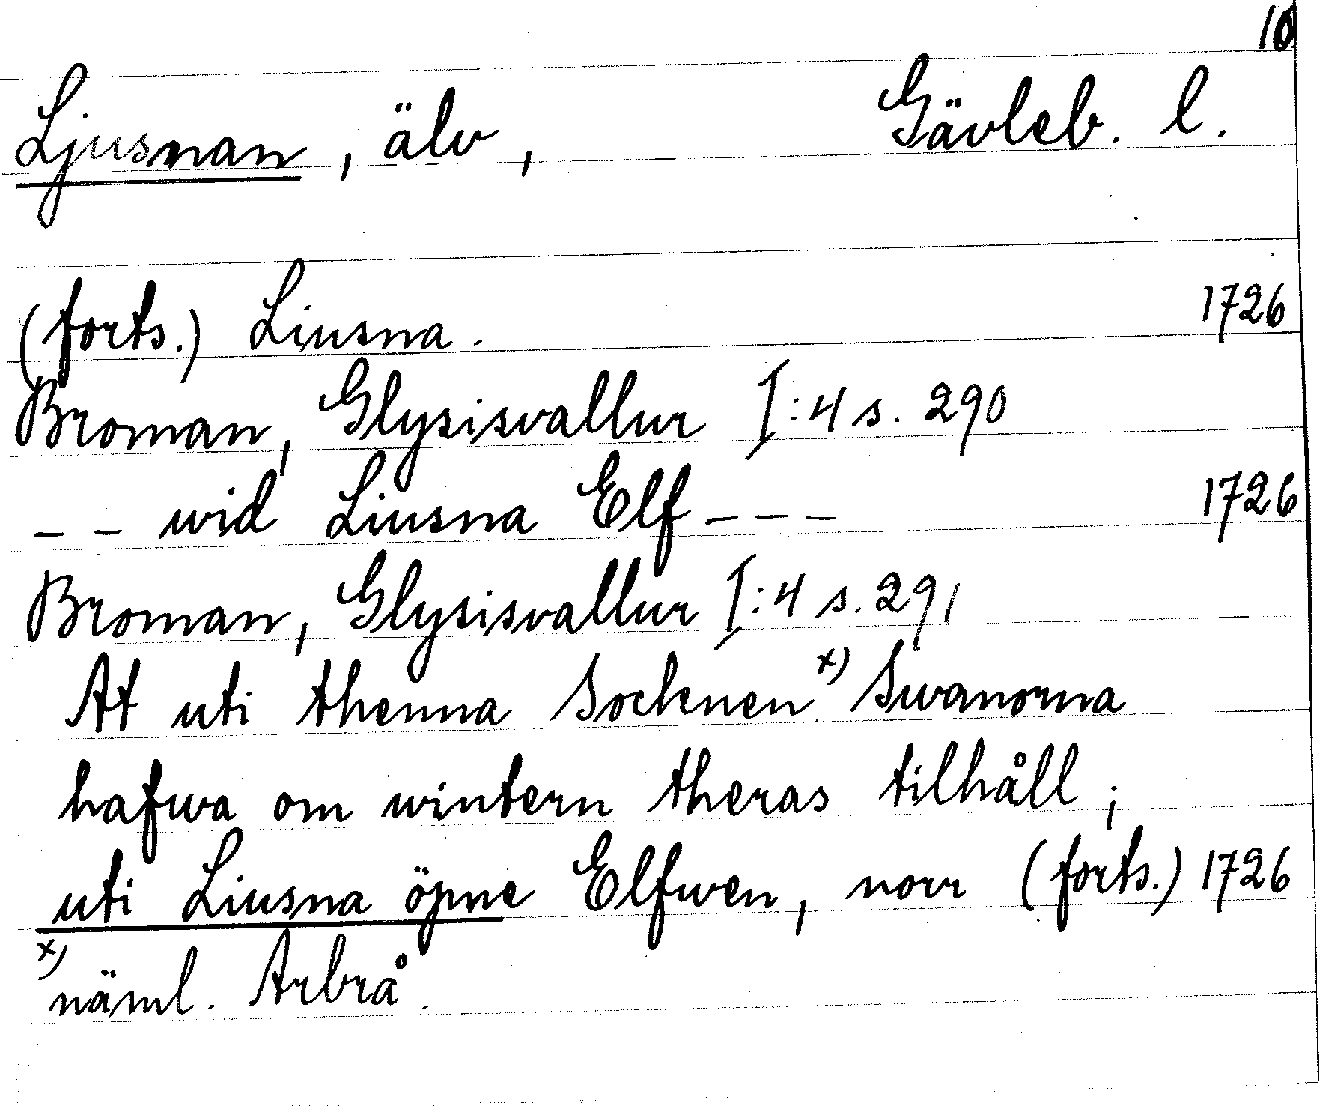 10
Ljusnan, älv, Gävleb. l.
(forts.) Liusna. 1726
Broman, Glysisvallur I:4 s. 290
_ _ wid Liusna Elf _ _ _ 1726
Broman, Glysisvallur I:4 s. 291
At uti thenna Socknen x) Swanorna
hafwa om wintern theras tilhåll;
uti Liusna öpne Elfwen, norr (forts.) 1726
x) näml. Arbrå.